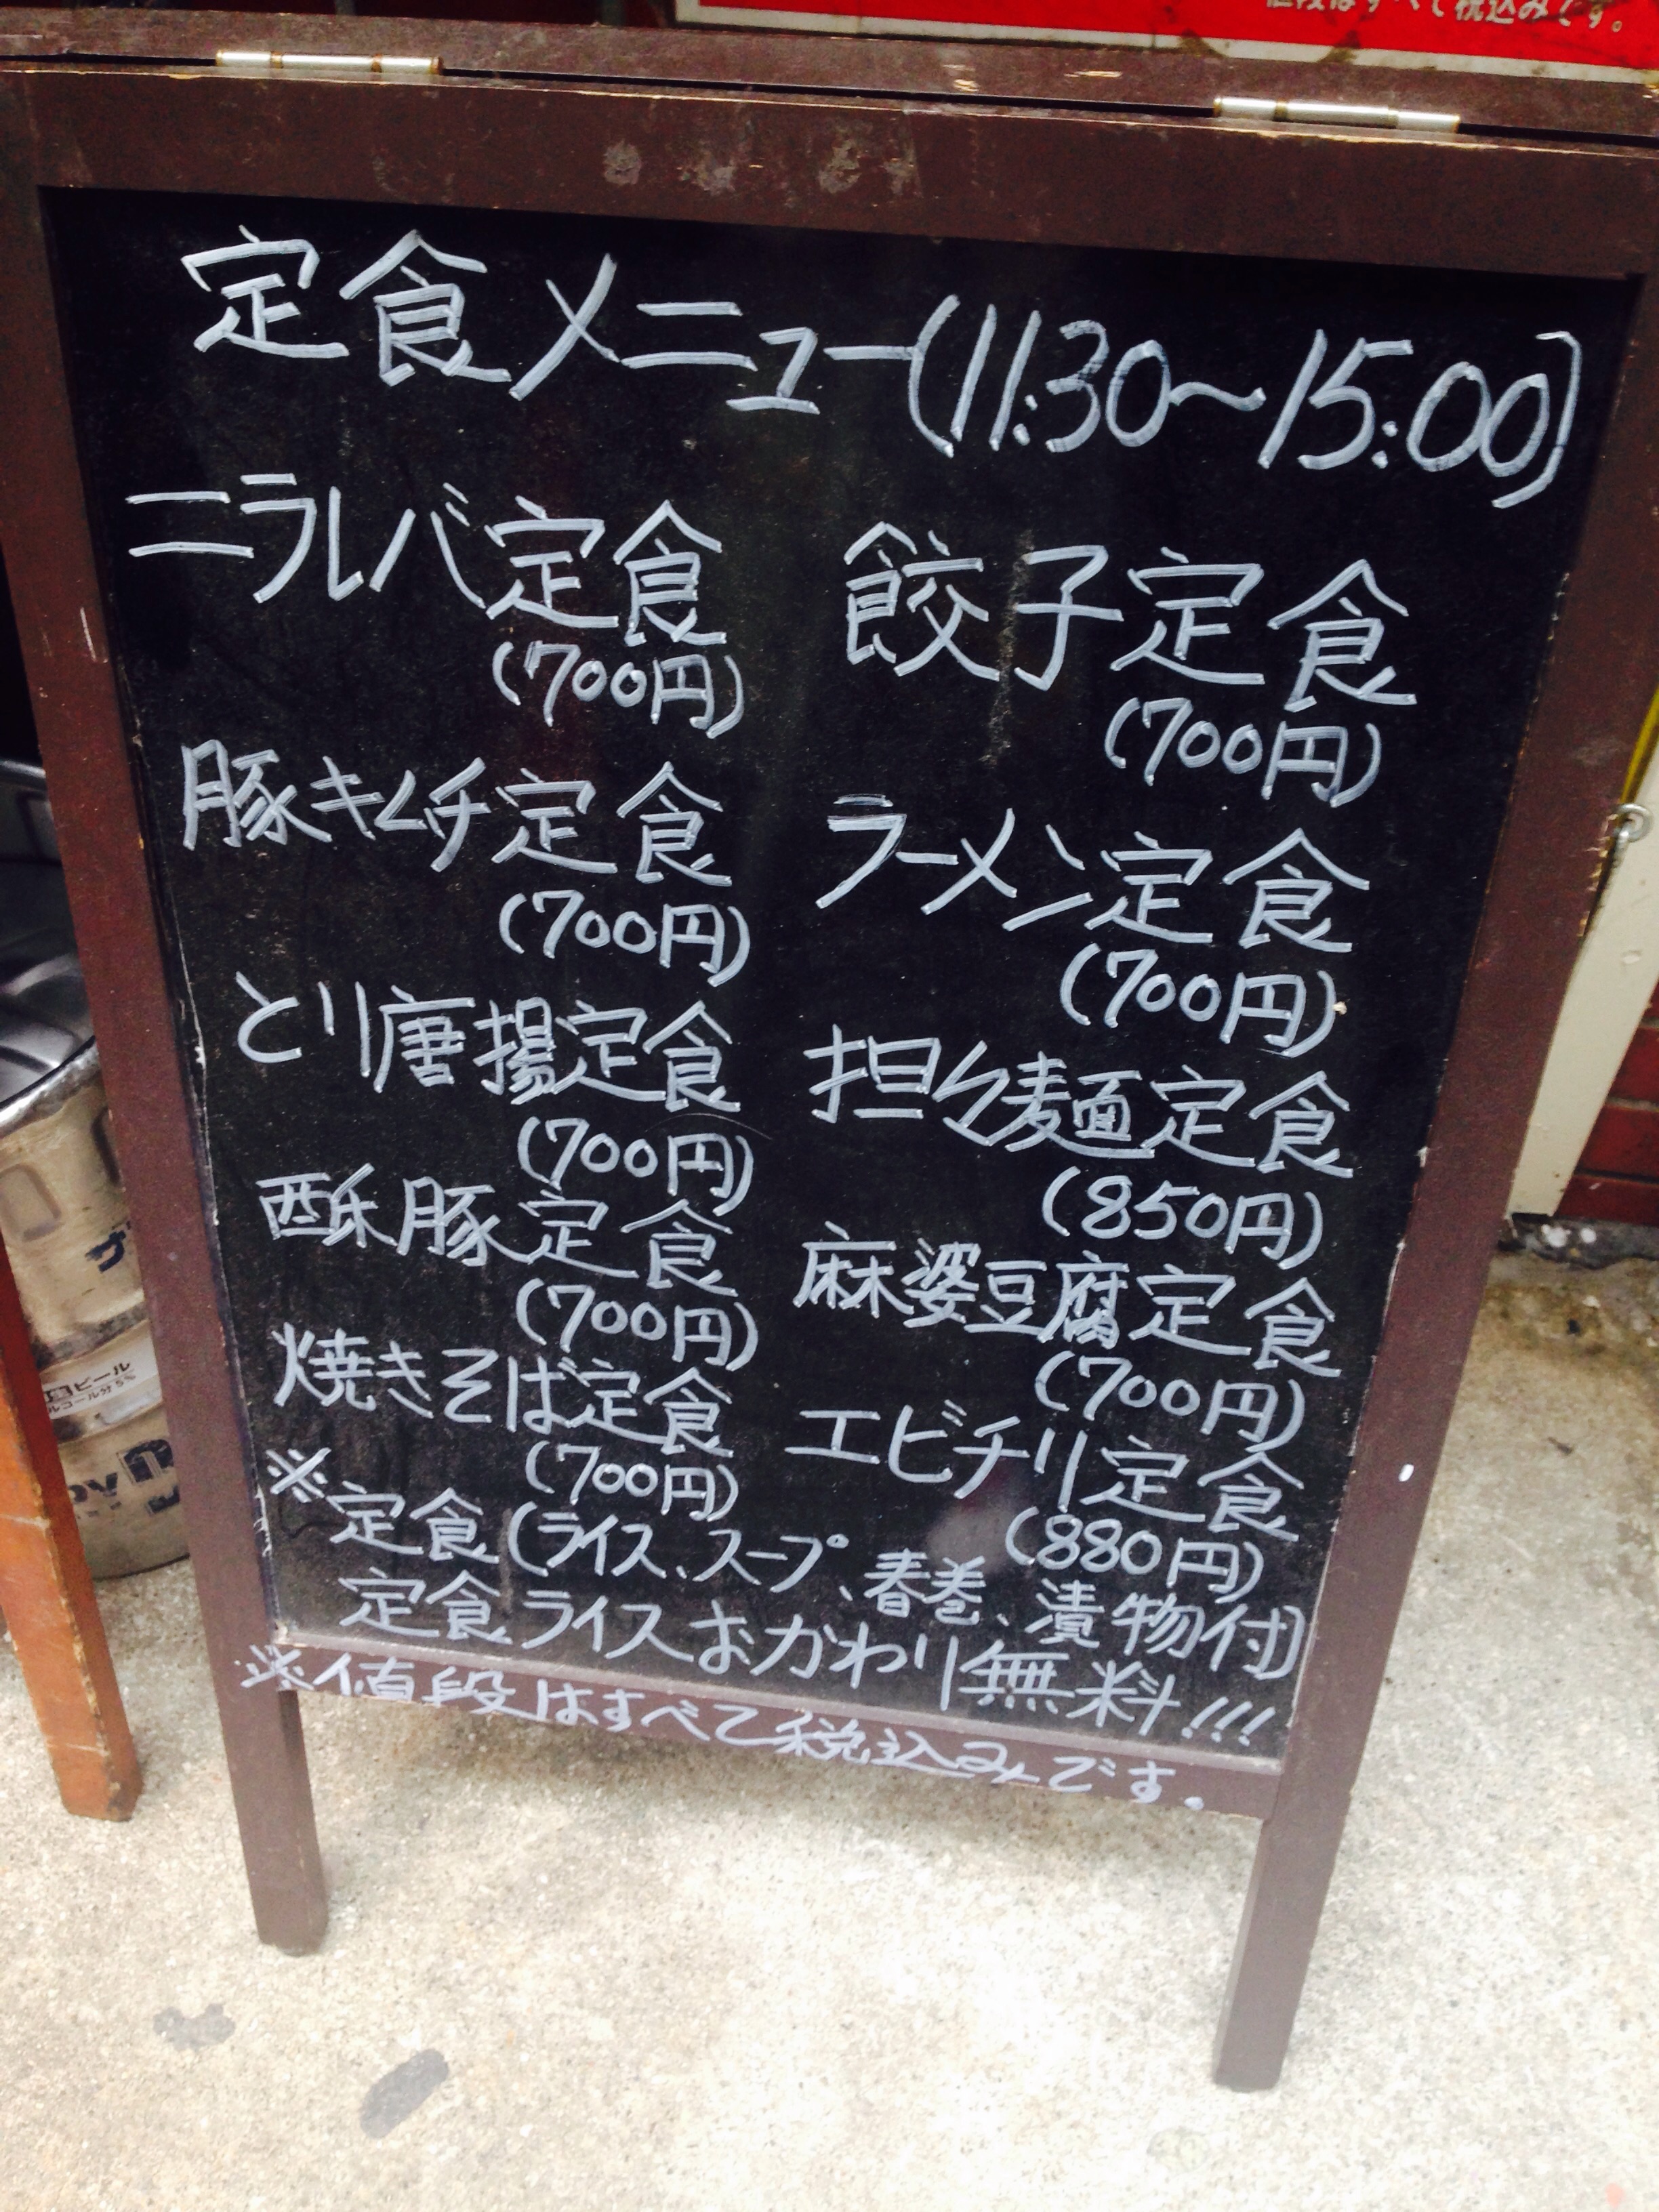 値段はすべて税込みです。
定食メニュー(11:30〜15:00)
ニラレバ定食
(700円)
豚キムチ定食
(700円)
とり唐揚定食
(700円)
酢豚定食
(700円)
焼きそば定食
(700円)
餃子定食
(700円)
ラーメン定食
(700円)
担々麺定食
(850円)
麻婆豆腐定食
(700円)
エビチリ定食
(880円)
※定食(ライス、スープ、春巻、漬物付)
定食ライスおかわり無料!!!
※値段はすべて税込みです.
生ビール
ルコール分5%